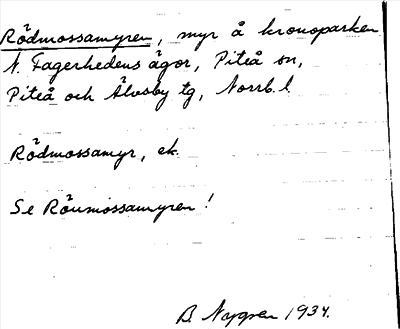 Rödmossamyren, myr å kronoparken
N. Fagerhedens ägor, Piteå sn,
Piteå och Älvsby tg, Norrb. l.
Rödmossamyr, ek.
Se Röumossamyren!
B. Nygren 1934.